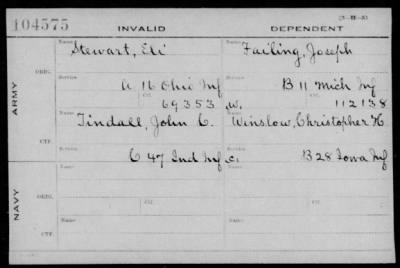 104575 INVALID DEPENDENT
Name Stewart, Eli Name Failing, Joseph
ARMY ORIG. Service A 16 Ohio Inf Service B 11 Mich Inf
Ctf. 69353 W. Ctf. 112138
CTF. Name Tindall, John C. Name Winslow, Christopher H
C 47 Ind Inf C. B 28 Iowa Inf
NAVY ORIG. Name Name
Service Service
Ctf. Ctf.
CTF. Name Name